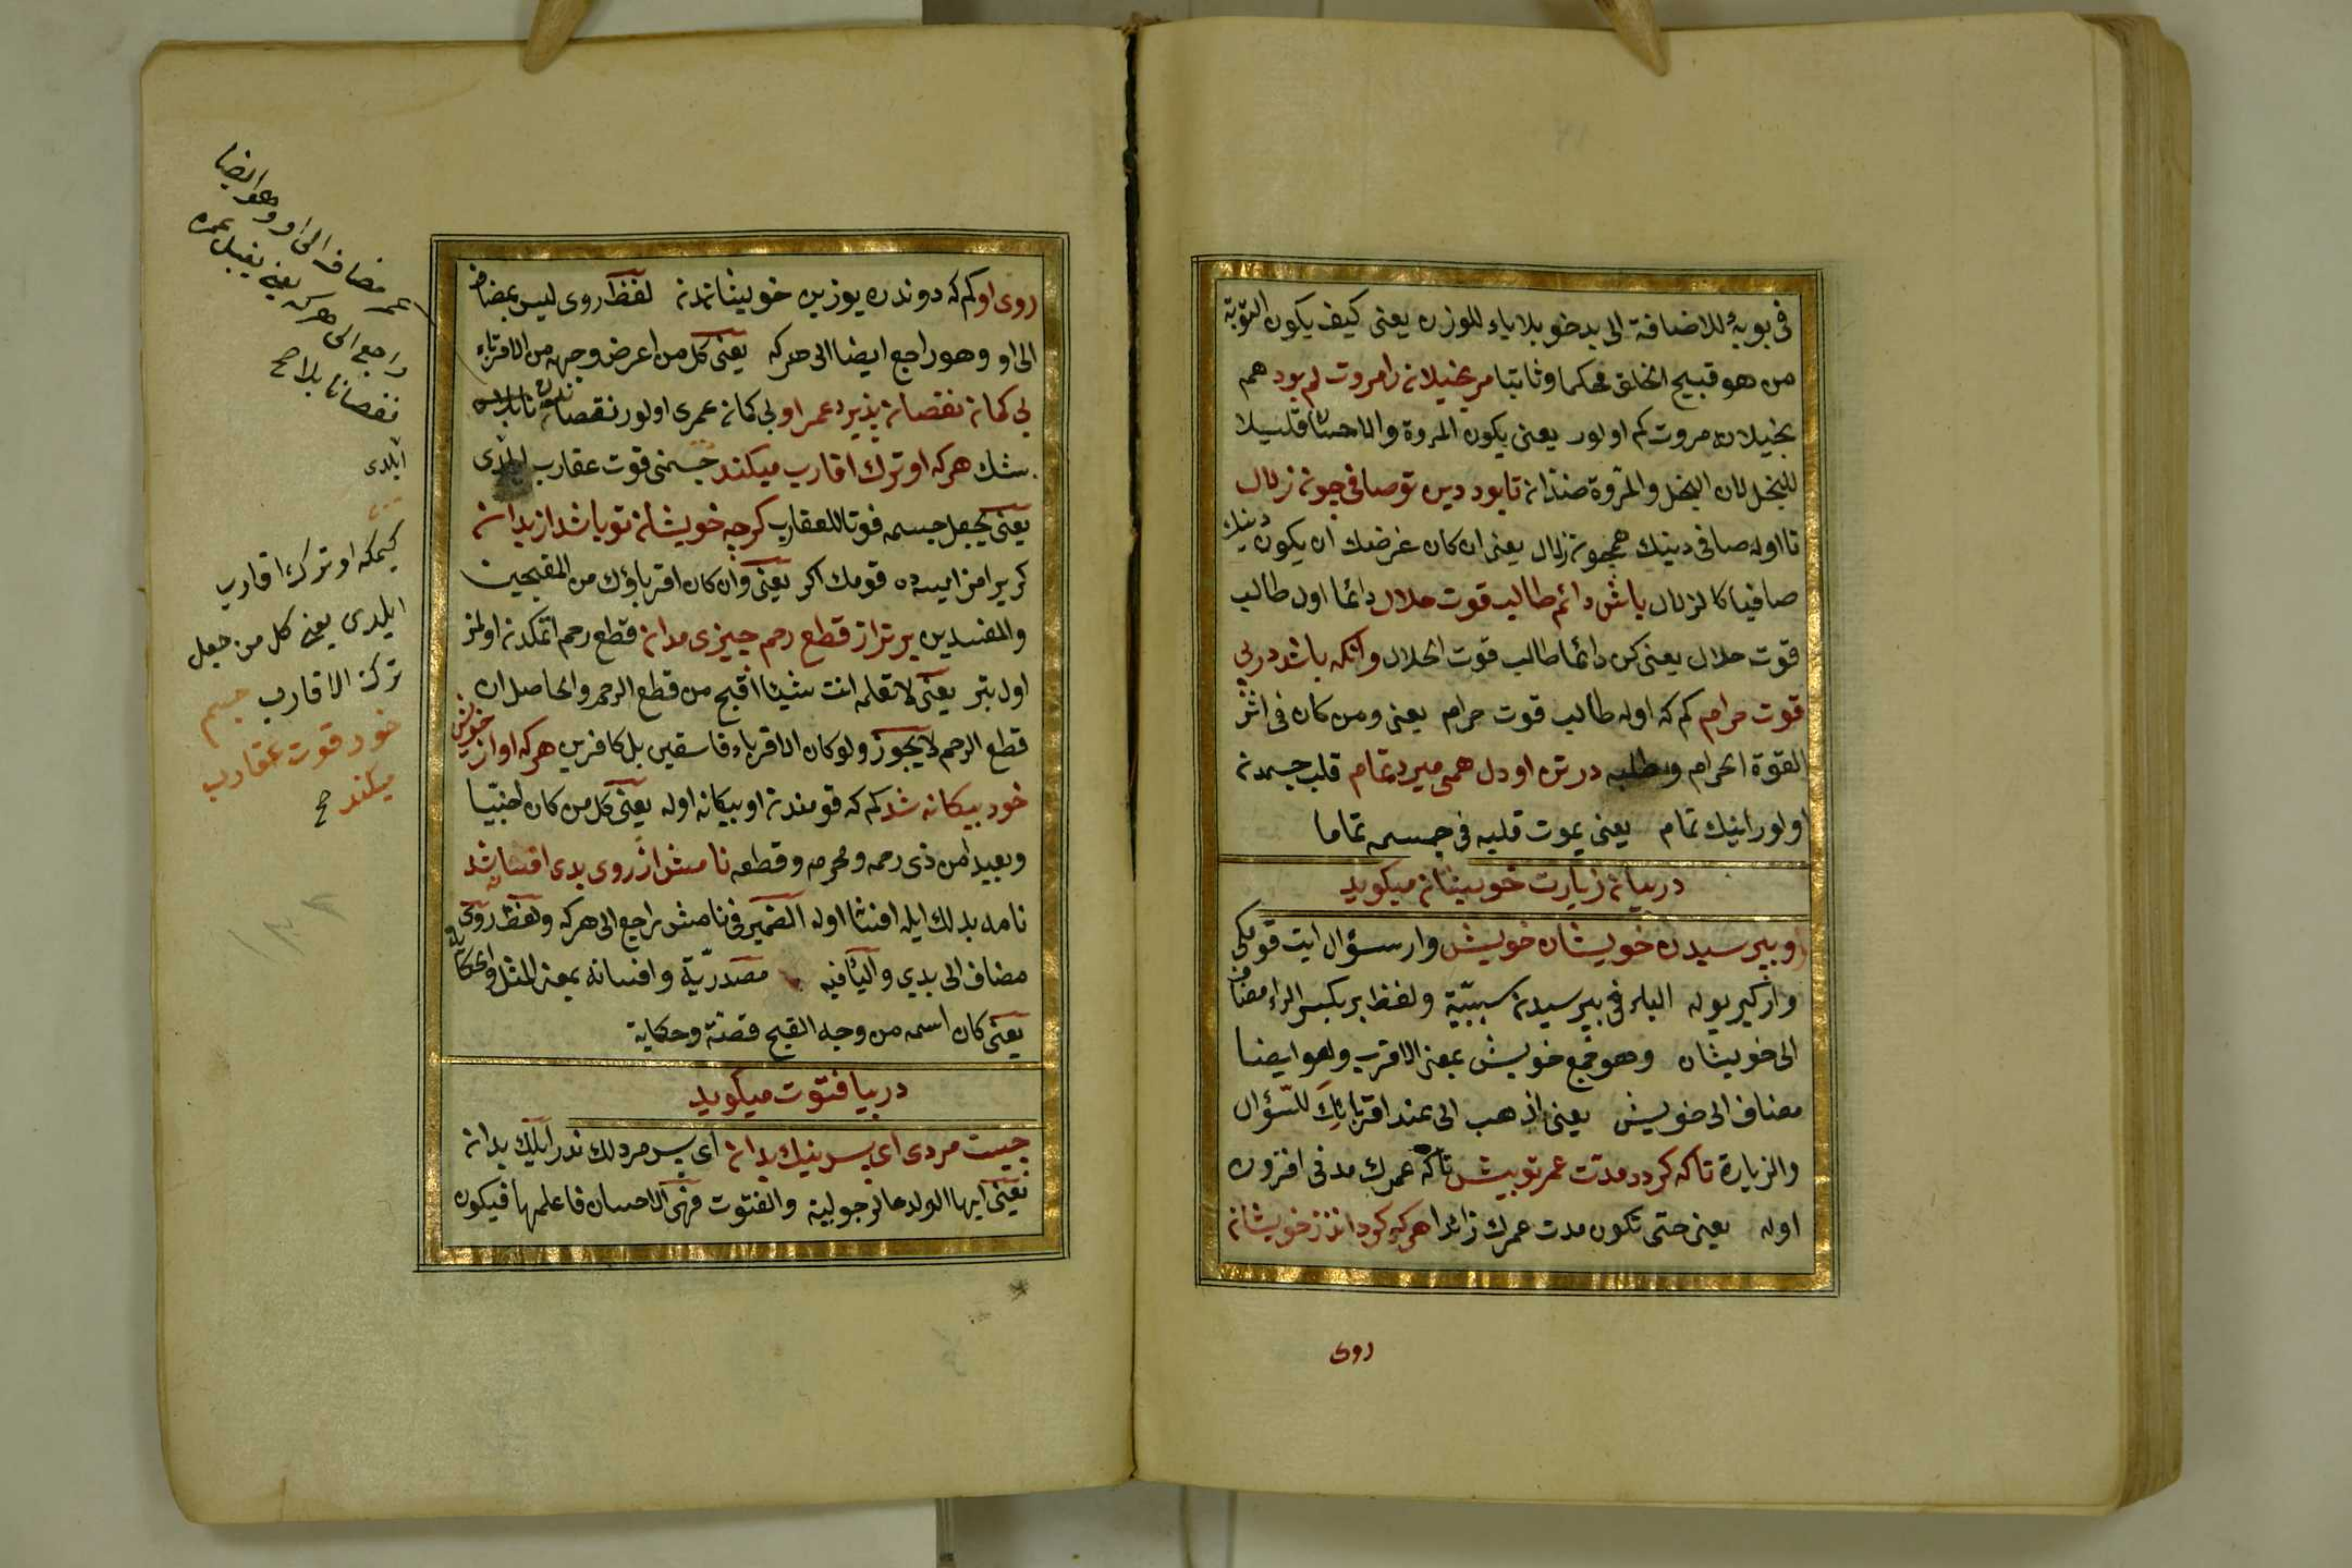 فی بوبهٔ للاضافة الی بدخو بلا یاء للوزن یعنی کیف یکون التوبة
من هو قبیح الخلق محکما وثابتا مر بخیلانرا مروت کم بود هم
بخیلان مروت کم اولور یعنی یکون المروة والاحسان قلیلا
للبخل لان البخل والمروة ضدان تا بود دین تو صافی چون زلال
تا اوله صافی دینک همچون زلال یعنی ان کان غرضک ان یکون دینک
صافیا کالزلال باش دائم طالب قوت حلال دائما اول طالب
قوت حلال یعنی کن دائما طالب قوت الحلال وانکه باشد در پی
قوت حرام کم که اوله طالب قوت حرام یعنی ومن کان فی اثر
القوة الحرام وطلبه در تن او دل همی میرد تمام قلب جسمدن
اولور اینک تمام یعنی یموت قلبه فی جسمه تماما
در بیان زیارت خویشان میکوید
رو بپرسیدن خویشان خویش وار سؤال ایت قومکی
وارکیر یوله الباء فی بپرسیدن سببیة ولفظ بر بکسر الراء مضاف
الی خویشان وهو جمع خویش بمعنی الاقرب وهو ایضا
مضاف الی خویش یعنی اذهب الی عند اقربائک للسؤال
والزیارة تا که کردد مدت عمر تو بیش تا که عمرک مدنی افزون
اوله یعنی حتی تکون مدت عمرک زائدا هرکه کرداند ز خویشان
روی
روی او کم که دوندره یوزین خویشاندن لفظ روی لیس بمضاف
الی او وهو راجع ایضا الی هرکه یعنی کل من اعرض وجهه من الاقرباء
بی کمان نقصان پذیرد عمر او بی کمان عمری اولور نقصان
شک هرکه او ترک اقارب میکند جسمنی قوت عقارب ایلدی
یعنی یجعل جسمه قوتا للعقارب کرچه خویشان تو باشد از بدان
کر یرامز ایسه ده قومک اکر یعنی وان کان اقرباؤک من المقبحین
والمفسدین بدتر از قطع رحم چیزی مدان قطع رحم اتمکدن اولمز
اول بتر یعنی لا تعلم انت شیئا اقبح من قطع الرحم والحاصل ان
قطع الرحم لا یجوز ولو کان الاقرباء فاسقین بل کافرین هرکه او از خویش
خود بیکانه شد کم که قومندن او بیکانه اوله یعنی کل من کان اجنبیا
وبعیدا من ذی رحمه ومحرمه وقطعه نامش از روی بدی افسانه شد
نامه بدلک ایله افسانا اوله الضمیر فی نامش راجع الی هرکه ولفظ روی
مضاف الی بدی والیاء فیه مصدریة وافسانه بمعنی المثل والحکایة
یعنی کان اسمه من وجه القبح قصة وحکایة
در بیان فتوت میکوید
چیست مردی ای پسر نیک بدان ای پسر مردلک ندر ایلک بدان
یعنی ایها الولد ما الرجولیة والفتوت فهی الاحسان فاعلمها فیکون
عمر مضاف الی او وهو ایضا
راجع الی هرکه یعنی یقبل عمره
نقصانا بلا صح
ایلدی
کیمکه او ترک اقارب
ایلدی یعنی کل من جعل
ترک الاقارب جسم
خود قوت عقارب
میکند صح